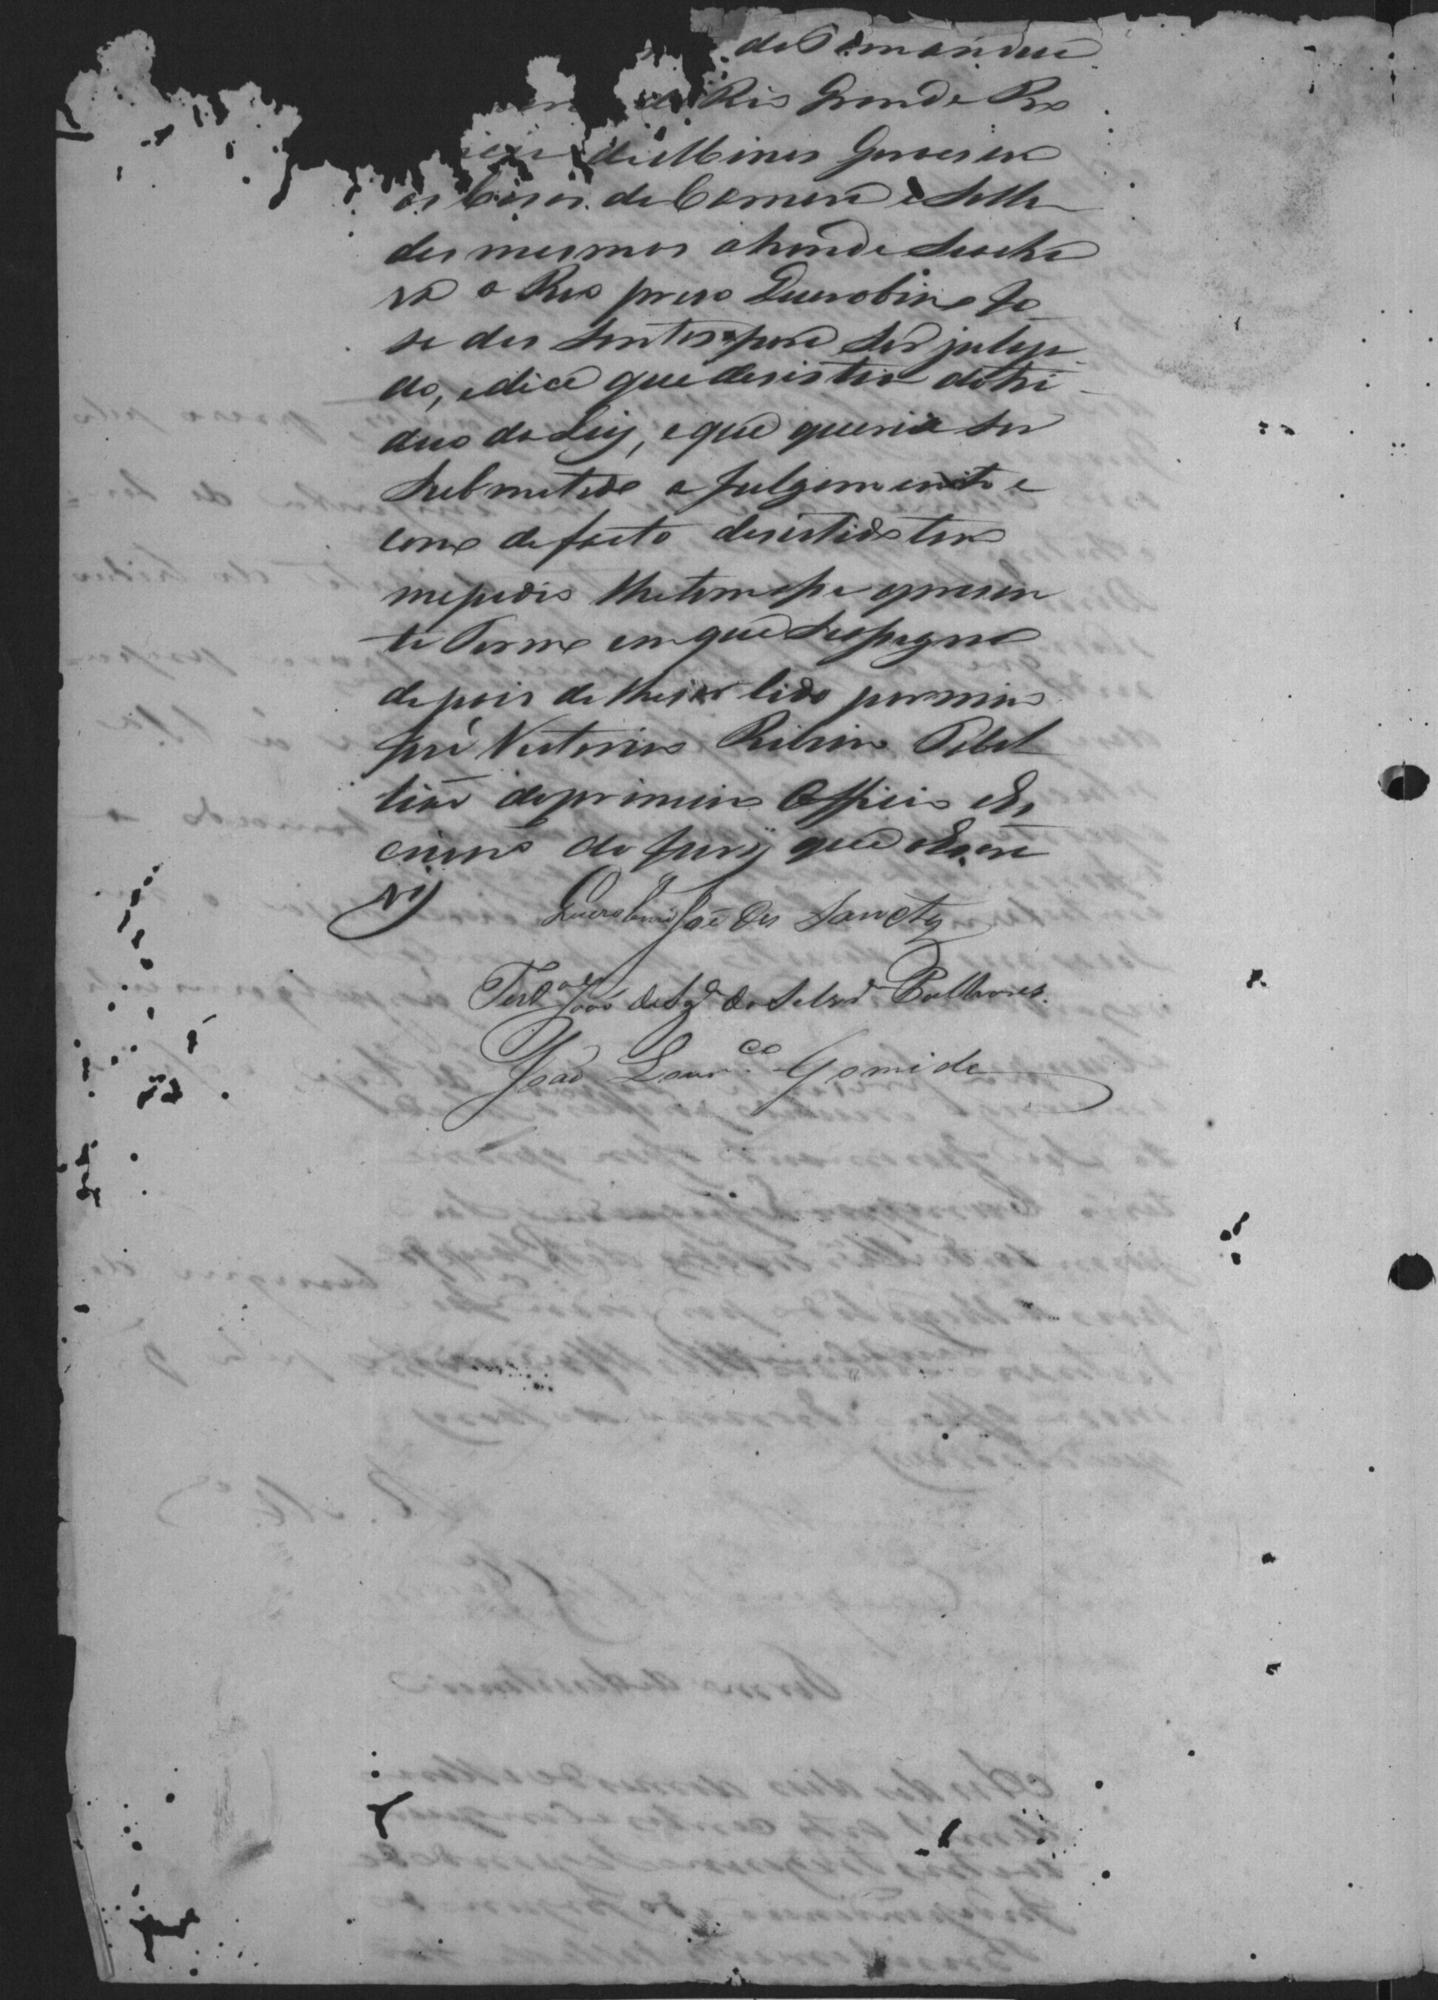 de Tamanduá
Rio Grande Pro
de Minas Geraes em
as Casas da Camera e Salla
das mesmas ahonde se acha
va o Reo preso Querobino Jo
se dos Santos para ser julga
do, e dice que desistia do tri
duo da Ley, e que queria ser
submetido a julgamento e
como de facto desistido tem
me pedio lhe tomasse o presen
te Termo em que se assigna
depois de lhe ser lido por mim
José Victorino Ribeiro Tabel
lião do primeiro Officio e Es
crivão do Jury que o escre
vy
Querobino José dos Sanctos
João da Sa. da Magalhães
João Lour.co Gomide